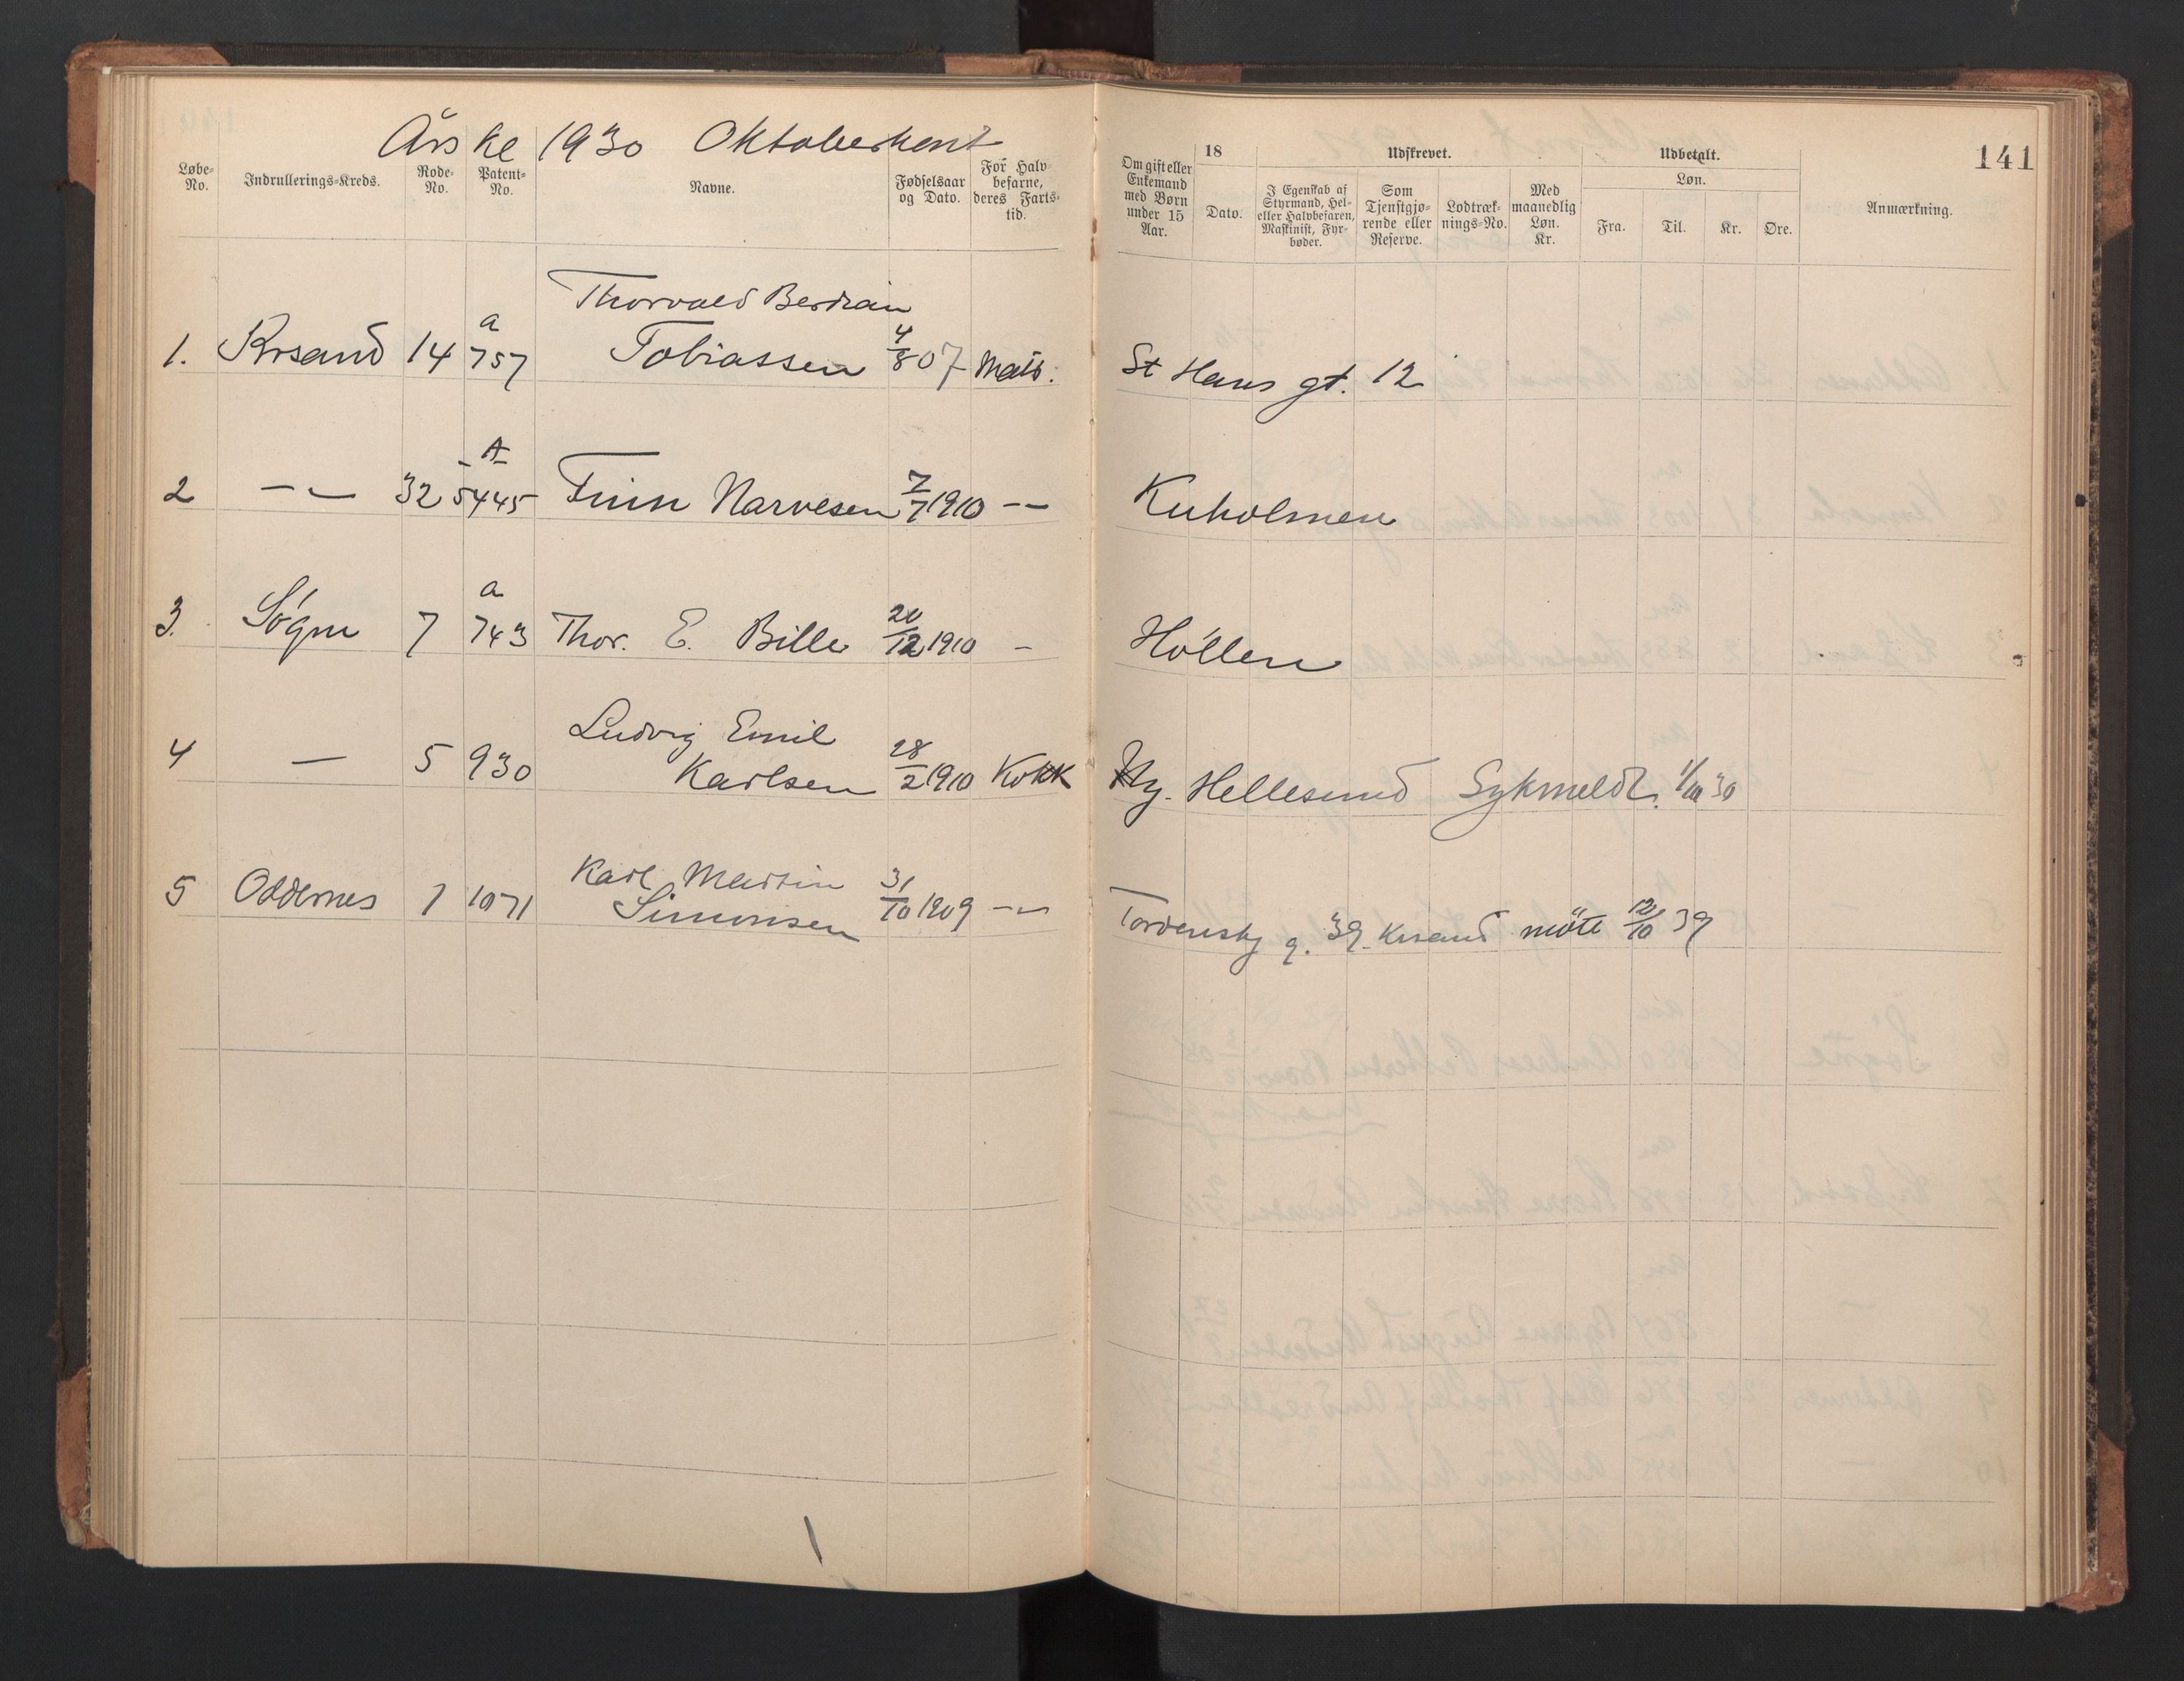 Års kl 1930 Oktoberkont
141
Løbe-No.
Indrullerings-Kreds.
Rode-No.
Patent-No.
Navne.
Fødselsaar og Dato.
For Halvbefarne, deres Fartstid.
Om gift eller Enkemand med Børn under 15 Aar.
18
Dato.
Udskrevet.
I Egenskab af Styrmand, Hel- eller Halvbefaren, Maskinist, Fyrbøder.
Som Tjenstgjørende eller Reserve.
Lodtræknings-No.
Med maanedlig Løn. Kr.
Udbetalt.
Løn.
Fra.
Til.
Kr.
Øre.
Anmærkning.
Thorvald
1. Krsand 14 a 757 Tobiassen 4/8 07 Matr. St Hans gt. 12
2 -"- 32 A 5445 Finn Narvesen 7/7 1910 -"- Kuholmen
3. Søgne 7 a 743 Thor. E. Bille 20/12 1910 - Höllen
Ludvig Emil
4 - 5 930 Karlsen 28/2 1910 Kokk Ny. Hellesund Sykmeldt. 1/10 30
Karl Martin
5 Oddernes 1 1071 Simonsen 31/10 1909 -"- Tordenskj g. 39. Krsand möte 12/10 39